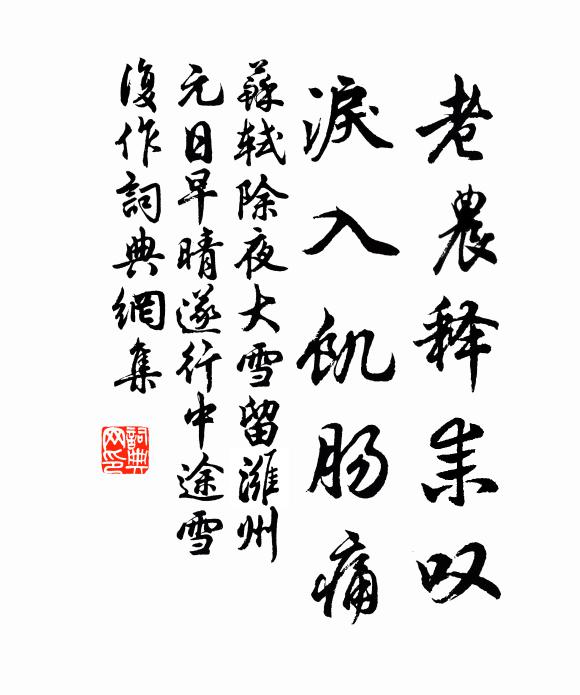 老農释耒叹
淚入飢肠痛
蘇軾除夜大雪留濰州
元日早晴遂行中途雪
復作詞典網集
詞典网印